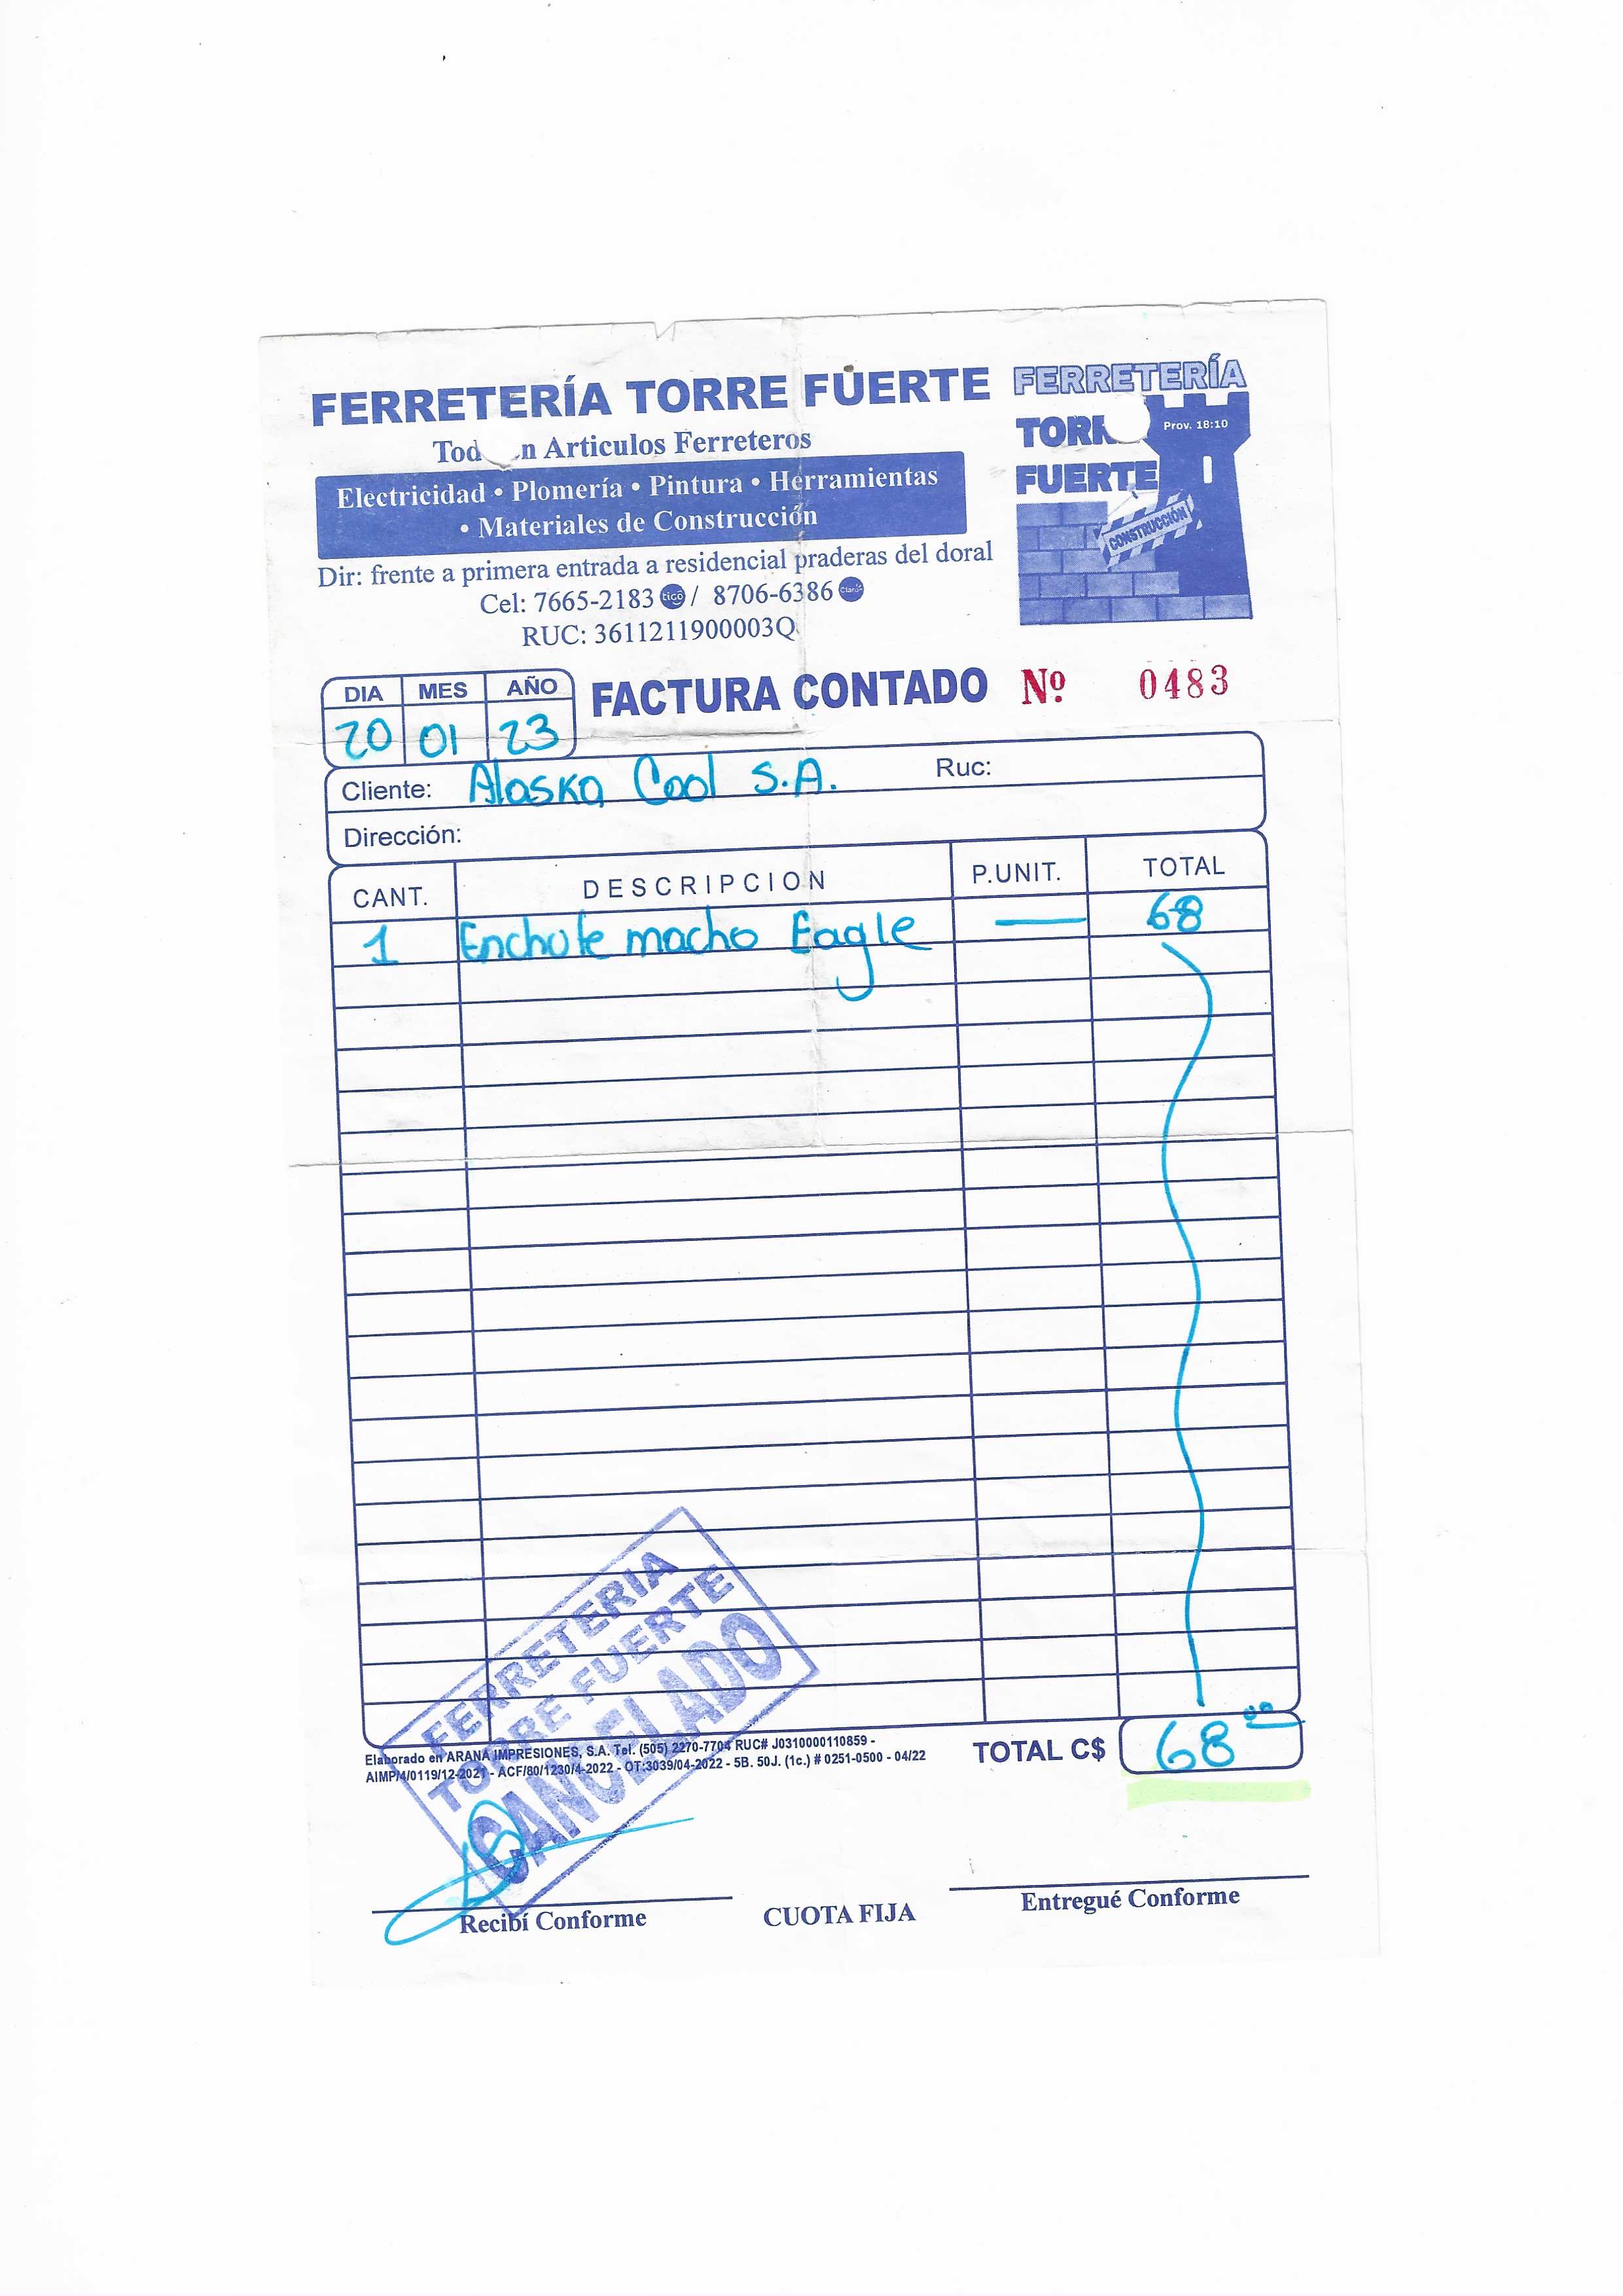 FERRETERÍA TORRE FUERTE
Tod n Articulos Ferreteros
Electricidad • Plomería • Pintura • Herramientas
• Materiales de Construcción
Dir: frente a primera entrada a residencial praderas del doral
Cel: 7665-2183 tigo / 8706-6386 Claro
RUC: 3611211900003Q
FERRETERÍA
TORR
FUERTE
Prov. 18:10
CONSTRUCCIÓN
DIA MES AÑO
20 01 23
FACTURA CONTADO Nº 0483
Cliente: Alaska Cool S.A. Ruc:
Dirección:
CANT. DESCRIPCION P.UNIT. TOTAL
1 Enchufe macho Eagle — 68
FERRETERIA
TORRE FUERTE
CANCELADO
Elaborado en ARANA IMPRESIONES, S.A. Tel. (505) 2270-7704 RUC# J0310000110859 -
AIMP/4/0119/12-2021 - ACF/80/1230/4-2022 - OT:3039/04-2022 - 5B. 50J. (1c.) # 0251-0500 - 04/22
TOTAL C$ 68.00
Recibí Conforme CUOTA FIJA Entregué Conforme